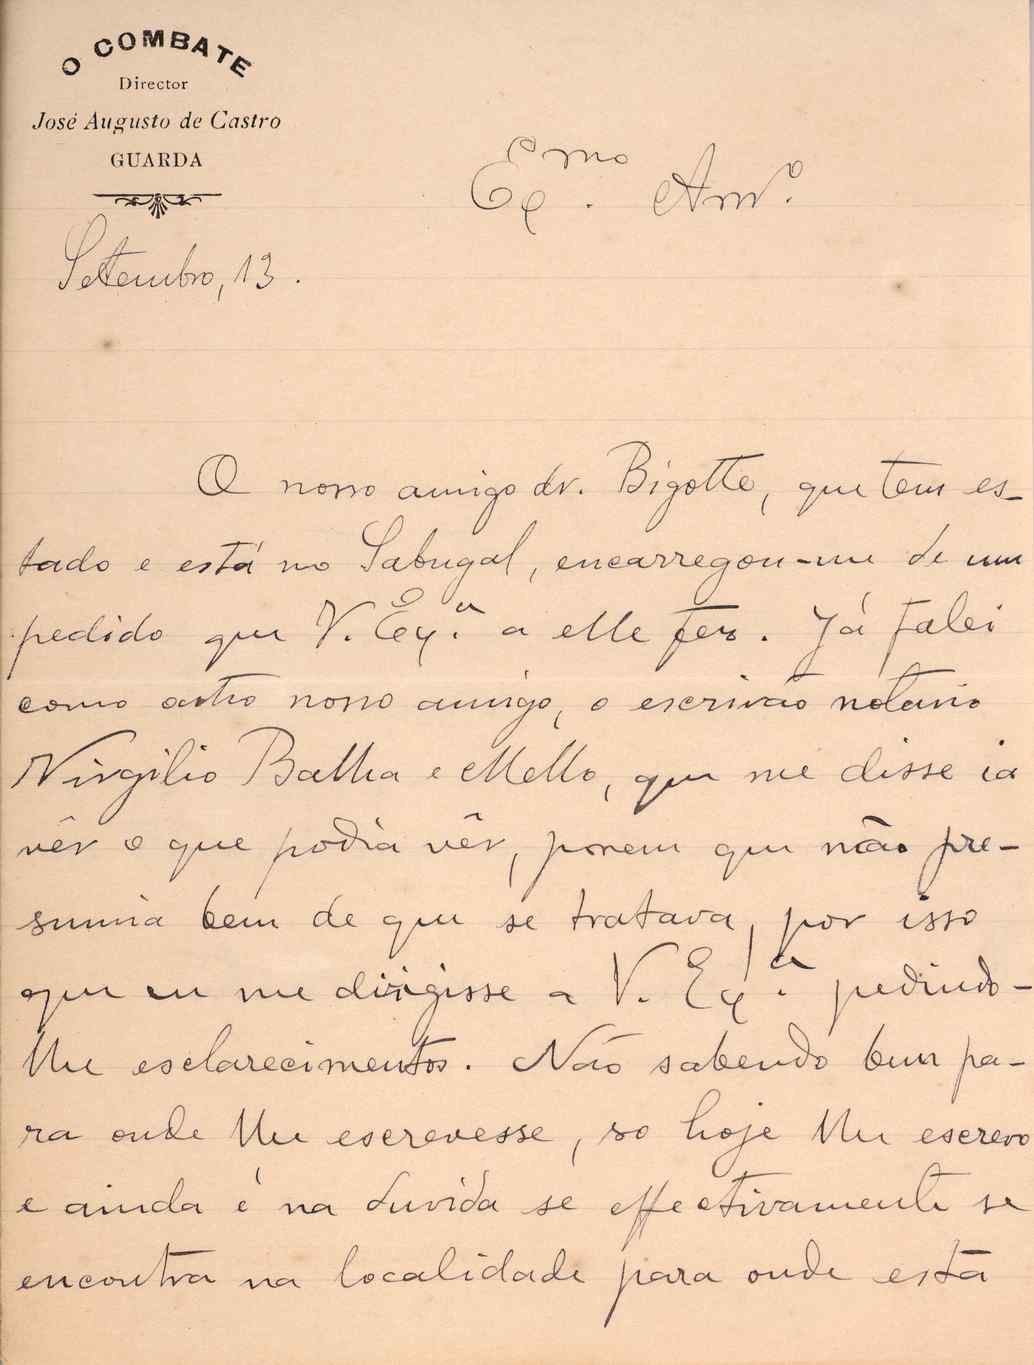 O COMBATE
Director
José Augusto de Castro
GUARDA
Ex.mo Am.o
Setembro, 13.
O nosso amigo dr. Bigotte, que tem es-
tado e está no Sabugal, encarregou-me de um
pedido que V. Ex.a a elle fez. Já falei
como outro nosso amigo, o escrivão notario
Virgilio Balha e Mello, que me disse ia
vêr o que podia vêr, porem que não pre-
sumia bem de que se tratava, por isso
que eu me dirigisse a V. Ex.a pedindo-
lhe esclarecimentos. Não sabendo bem pa-
ra onde lhe escrevesse, so hoje lhe escrevo
e ainda é na duvida se effectivamente se
encontra na localidade para onde está